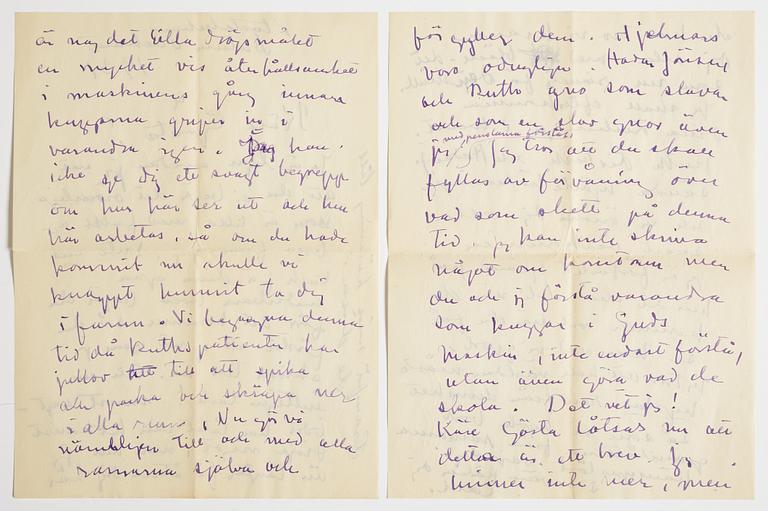 är nog det lilla dröjsmålet
en mycket vis återhållsamhet
i maskinens gång innan
kuggarna griper in i
varandra igen. Jag kan
icke ge dig ett svagt begrepp
om hur här ser ut och hur
här arbetas, så om du hade
kommit nu skulle vi
knappt hunnit ta dig
i famn. Vi begagna denna
tid då Ruths patienter har
jullov till att spika
och packa och skräpa ner
i alla rum. Nu gör vi
nämligen till och med alla
ramarna själva och
förgyller dem. Hjelmars
voro odugliga.
och Ruth gno som slavar
och som en slav gnor även
jag
med penslarna förstås
Jag tror att du skall
fyllas av förvåning över
vad som skett på denna
tid. jag kan inte skriva
något om konsten men
du och jag förstå varandra
som kuggar i Guds
maskin, inte endast förstå,
utan även göra vad de
skola. Det vet jag!
Käre Gösta låtsas nu att
detta är ett brev. Jag
hinner inte mer, men